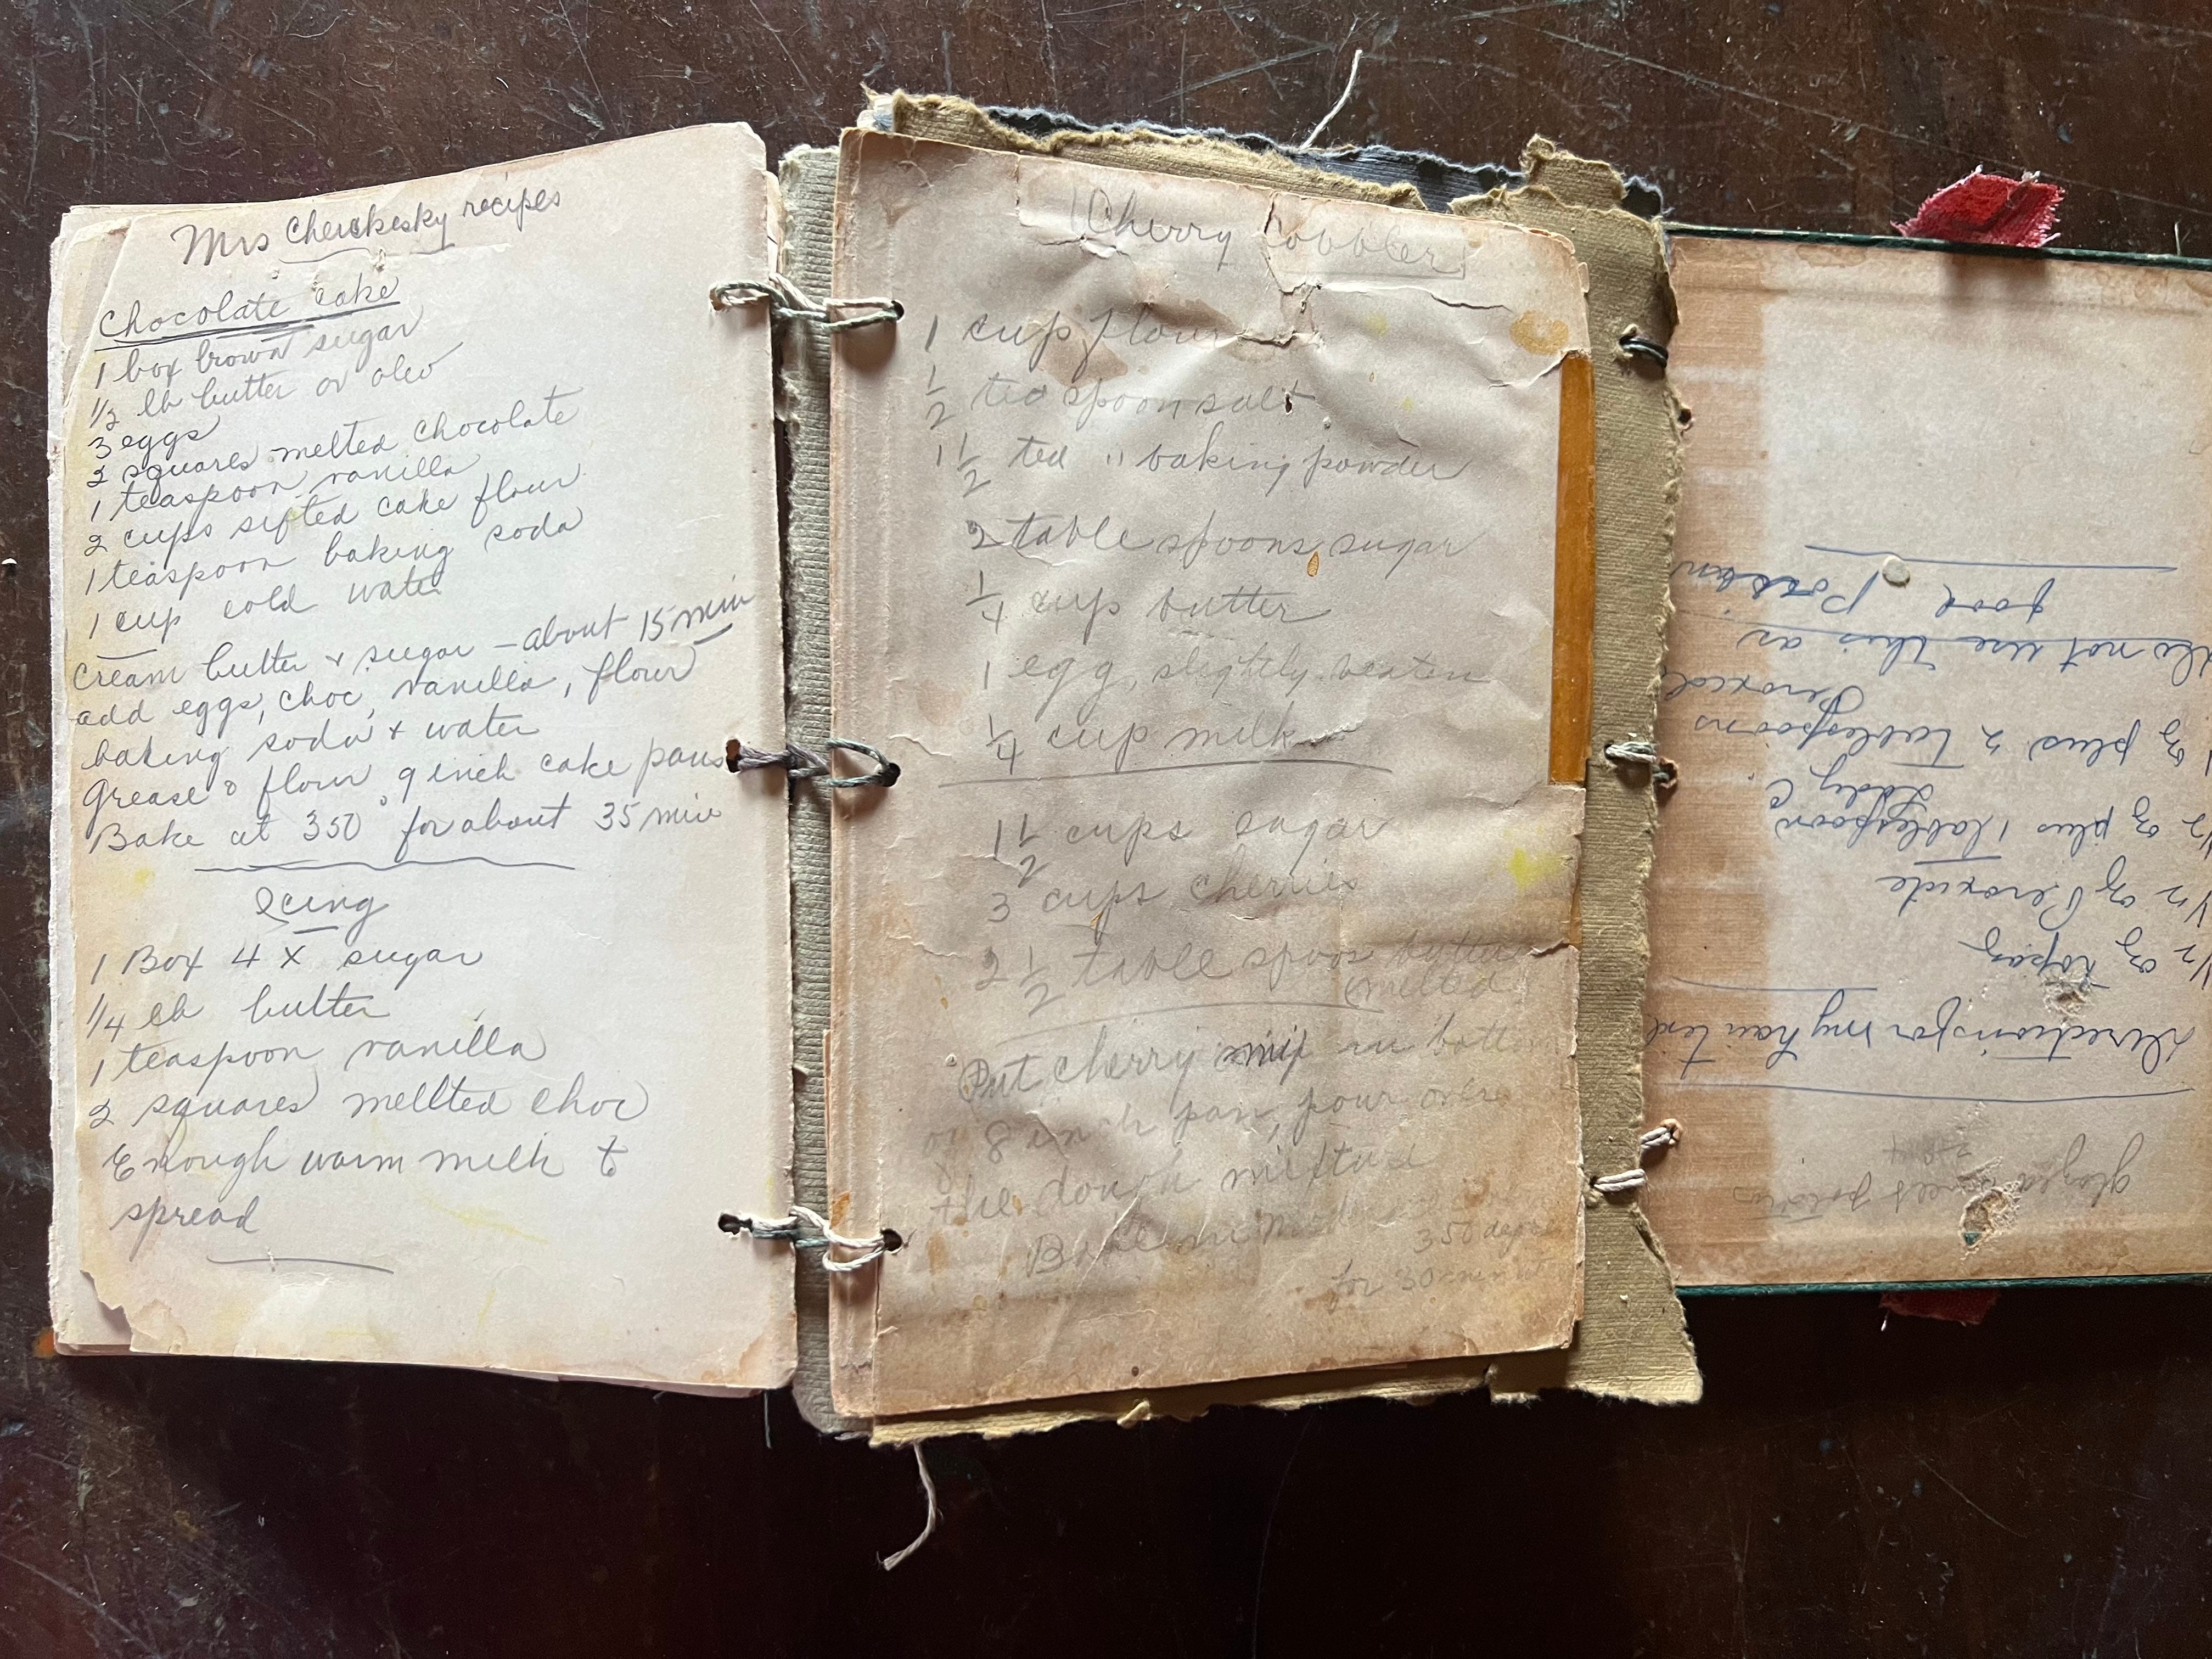 Mrs Cherckesky recipes
Chocolate cake
1 box brown sugar
1/2 lb butter or oleo
3 eggs
2 squares melted chocolate
1 teaspoon vanilla
2 cups sifted cake flour
1 teaspoon baking soda
1 cup cold water
Cream butter + sugar - about 15 min
add eggs, choc, vanilla, flour
baking soda + water
Grease & flour 9 inch cake pans
Bake at 350° for about 35 min
Icing
1 Box 4 X sugar
1/4 lb butter
1 teaspoon vanilla
2 squares mellted choc
Enough warm milk to
spread
Cherry Cobbler
1 cup flour
1/2 tea spoon salt
1 1/2 tea " baking powder
2 table spoons sugar
1/4 cup butter
1 egg, slightly beaten
1/4 cup milk
1 1/2 cups sugar
3 cups cherries
2 1/2 table spoon butter
(melted)
Put cherry mix in bottom
of 8 inch pan, pour over
the dough mixture
Bake in
350 degre
for 30 minut
glazed sweet potatoes
Directions for my hair tint
1/2 oz topaz
1/2 oz Peroxide
1/2 oz plus 1 tablespoon
Lady C.
1 oz plus 2 tablespoons
Peroxide
do not use this as
food Poison